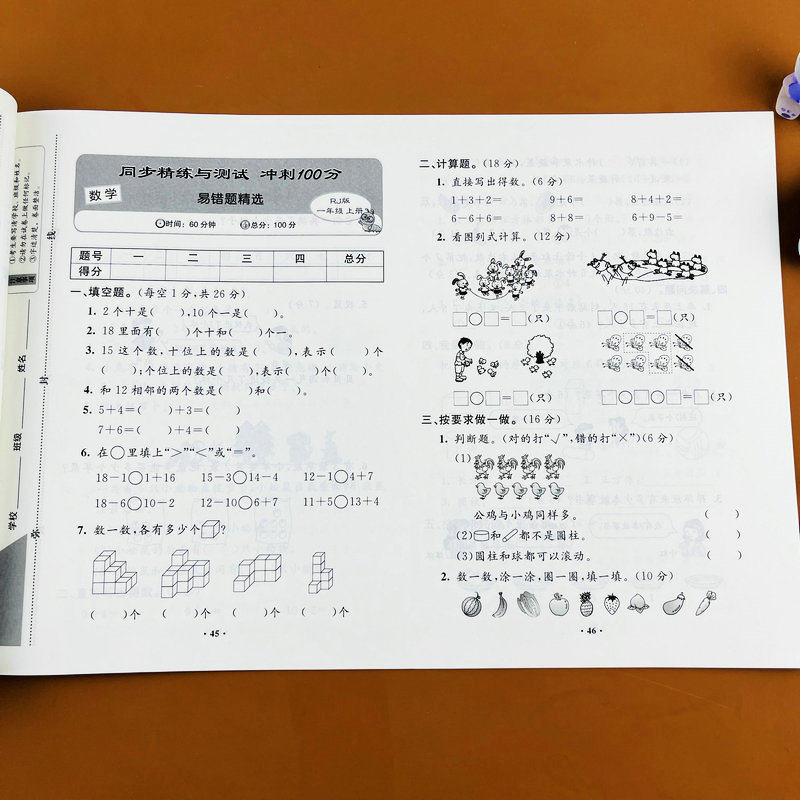 同步精练与测试 冲刺100分
数学
易错题精选
RJ版
一年级 上册
时间：60分钟 总分：100分
题号 一 二 三 四 总分
得分
一、填空题。(每空1分,共26分)
1. 2个十是( ),10个一是( )。
2. 18里面有( )个十和( )个一。
3. 15这个数,十位上的数是( ),表示( )个
( );个位上的数是( ),表示( )个( )。
4. 和12相邻的两个数是( )和( )。
5. 5+4=( )+3=( )
7+6=( )+4=( )
6. 在○里填上“>”“<”或“=”。
18-1○1+16 15-3○14-4 12-1○4+7
18-6○10-2 12-10○6+7 11+5○13+4
7. 数一数,各有多少个?
( )个 ( )个 ( )个 ( )个
· 45 ·
二、计算题。(18分)
1. 直接写出得数。(6分)
1+3+2= 9+6= 8+4+2=
6-6+6= 8+8= 6+9-5=
2. 看图列式计算。(12分)
□○□=□(只) □○□=□(只)
□○□=□(只) □○□○□=□(只)
三、按要求做一做。(16分)
1. 判断题。(对的打“√”,错的打“×”)(6分)
(1)
公鸡与小鸡同样多。 ( )
(2) 和 都不是圆柱。 ( )
(3)圆柱和球都可以滚动。 ( )
2. 数一数,涂一涂,圈一圈,填一填。(10分)
· 46 ·
①考生要写清学校、班级和姓名。
②请勿在试卷上做任何标记。
③字迹清楚，卷面整洁。
学校 班级 姓名
封
线